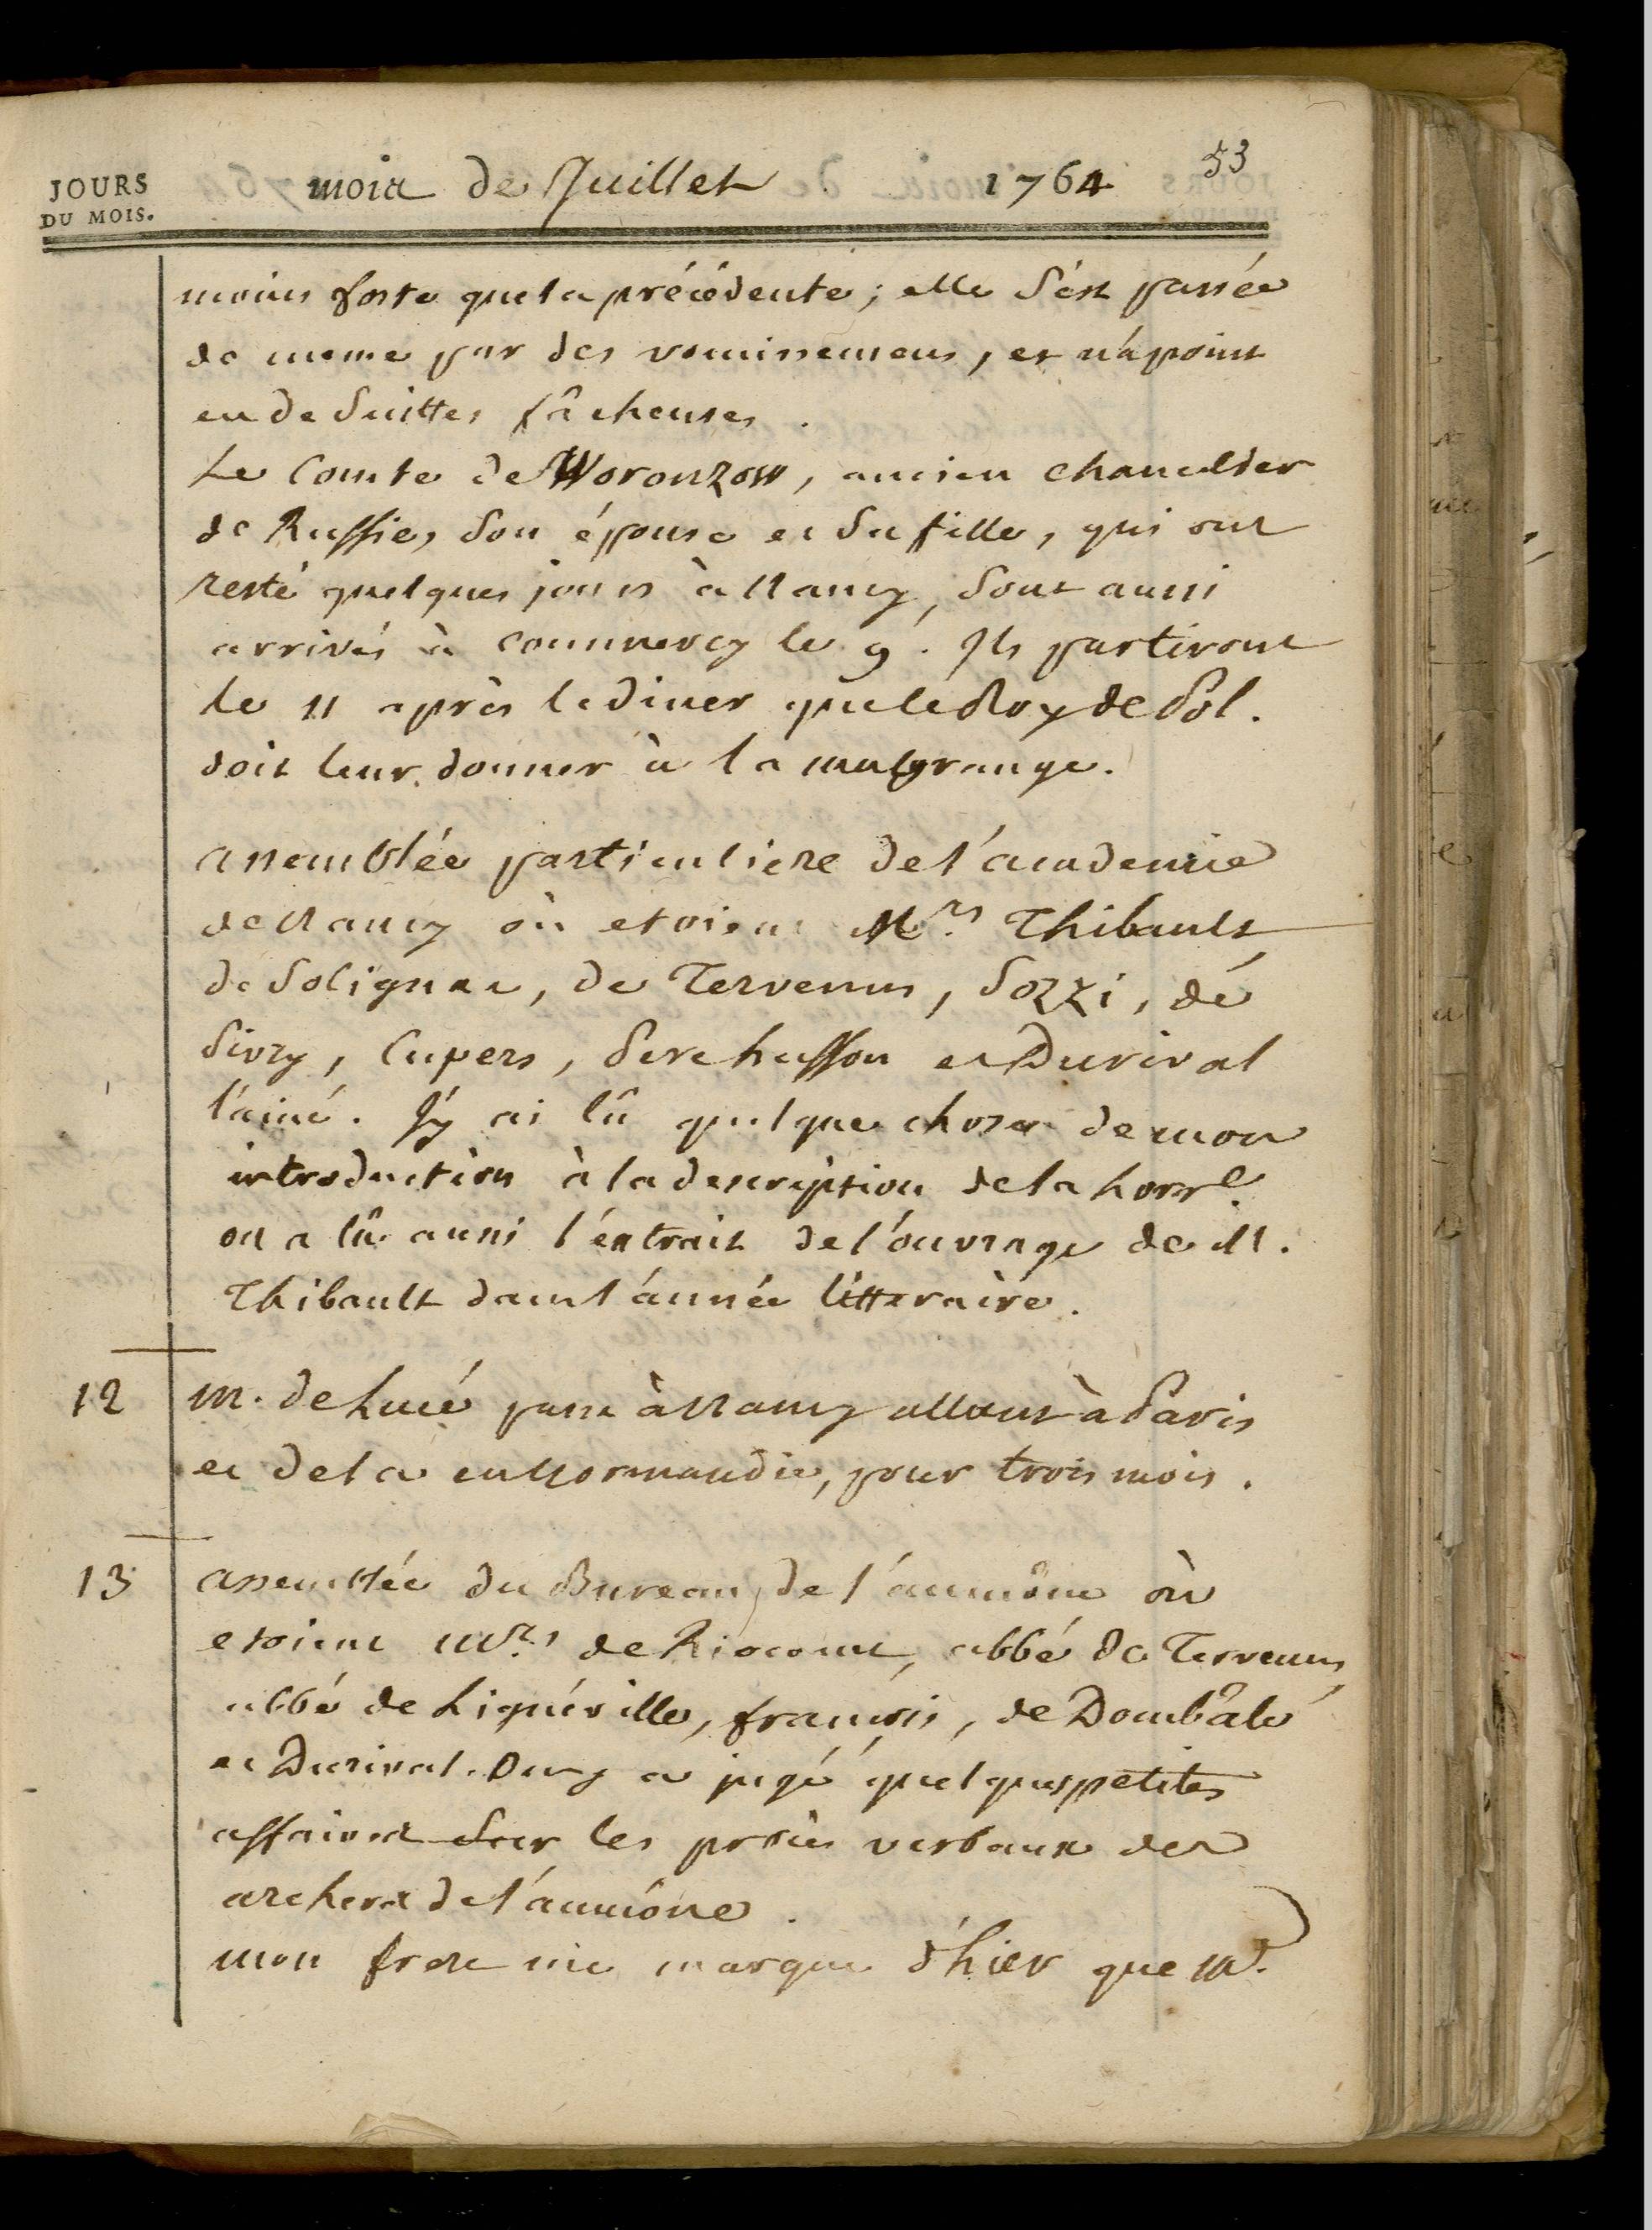 53
JOURS
DU MOIS.
mois de Juillet 1764
moins forte que la précédente; elle s'est passée
de meme par des vomissemens, et n'a point
eu de suittes fâcheuses.
Le Comte de Woronzow, ancien chancelier
de Russie, son épouse et sa fille, qui ont
resté quelques jours à Nancy, sont aussi
arrivés à Commercy le 9. Ils partiront
le 11 après le diner que le Roy de Pol.
doit leur donner à la malgrange.
assemblée particuliere de l'academie
de Nancy où etoient Mrs Thibault
de Solignac, de Tervenus, Sozzi, de
Sivry, Cupers, Pere husson et Durival
l'ainé. J'y ai lû quelque chose de mon
introduction à la description de la Lorre.
on a lû aussi l'extrait de l'ouvrage de M.
Thibault dans l'année litteraire.
12 M. de Lucé passe à Nancy allant à Paris
et de la en Normandie, pour trois mois.
13 assemblée du Bureau de l'aumône où
etoient Mrs de Riocourt, abbé de Tervenus
abbé de Lignéville, françois, de Dombâle
et Durival. On y a jugé quelques petites
affaires sur les procès verbaux des
archers de l'aumône.
mon frere me marque d'hier que M.